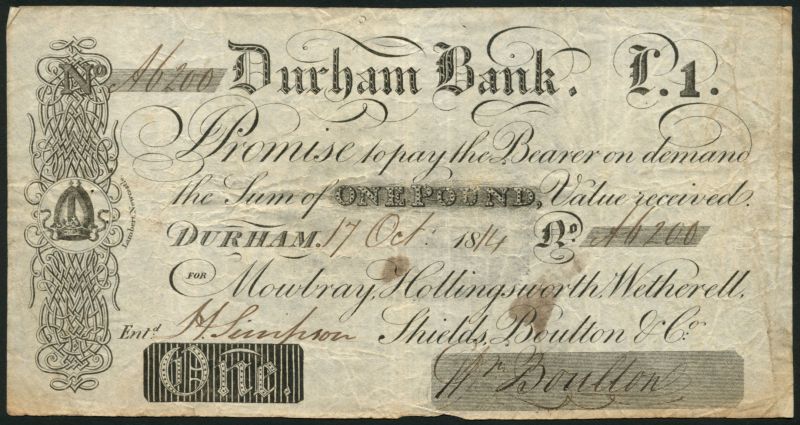 No A6200 Durham Bank. L.1.
I Promise to pay the Bearer on demand
the Sum of ONE POUND, Value received.
DURHAM. 17 Oct: 1814 No A6200
FOR Mowbray, Hollingsworth, Wetherell,
Entd. H. Simpson Shields, Boulton & Co.
One. Wm Boulton